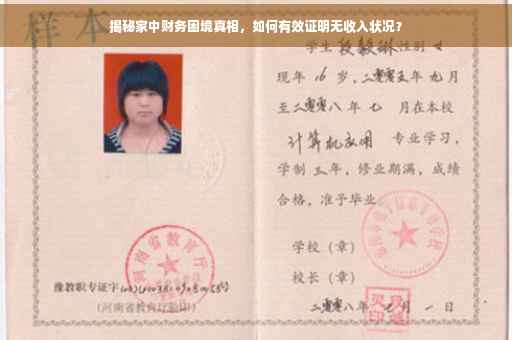 揭秘家中财务困境真相，如何有效证明无收入状况？
样本
学生段毅琳性别女
现年16岁，二零零五年九月
至二零零八年七月在本校
计算机应用 专业学习，
学制三年，修业期满，成绩
合格，准予毕业。
学校（章）
校长（章）
二零零八年七月一日
河南省教育厅
豫教职专证字
（河南省教育厅验印）